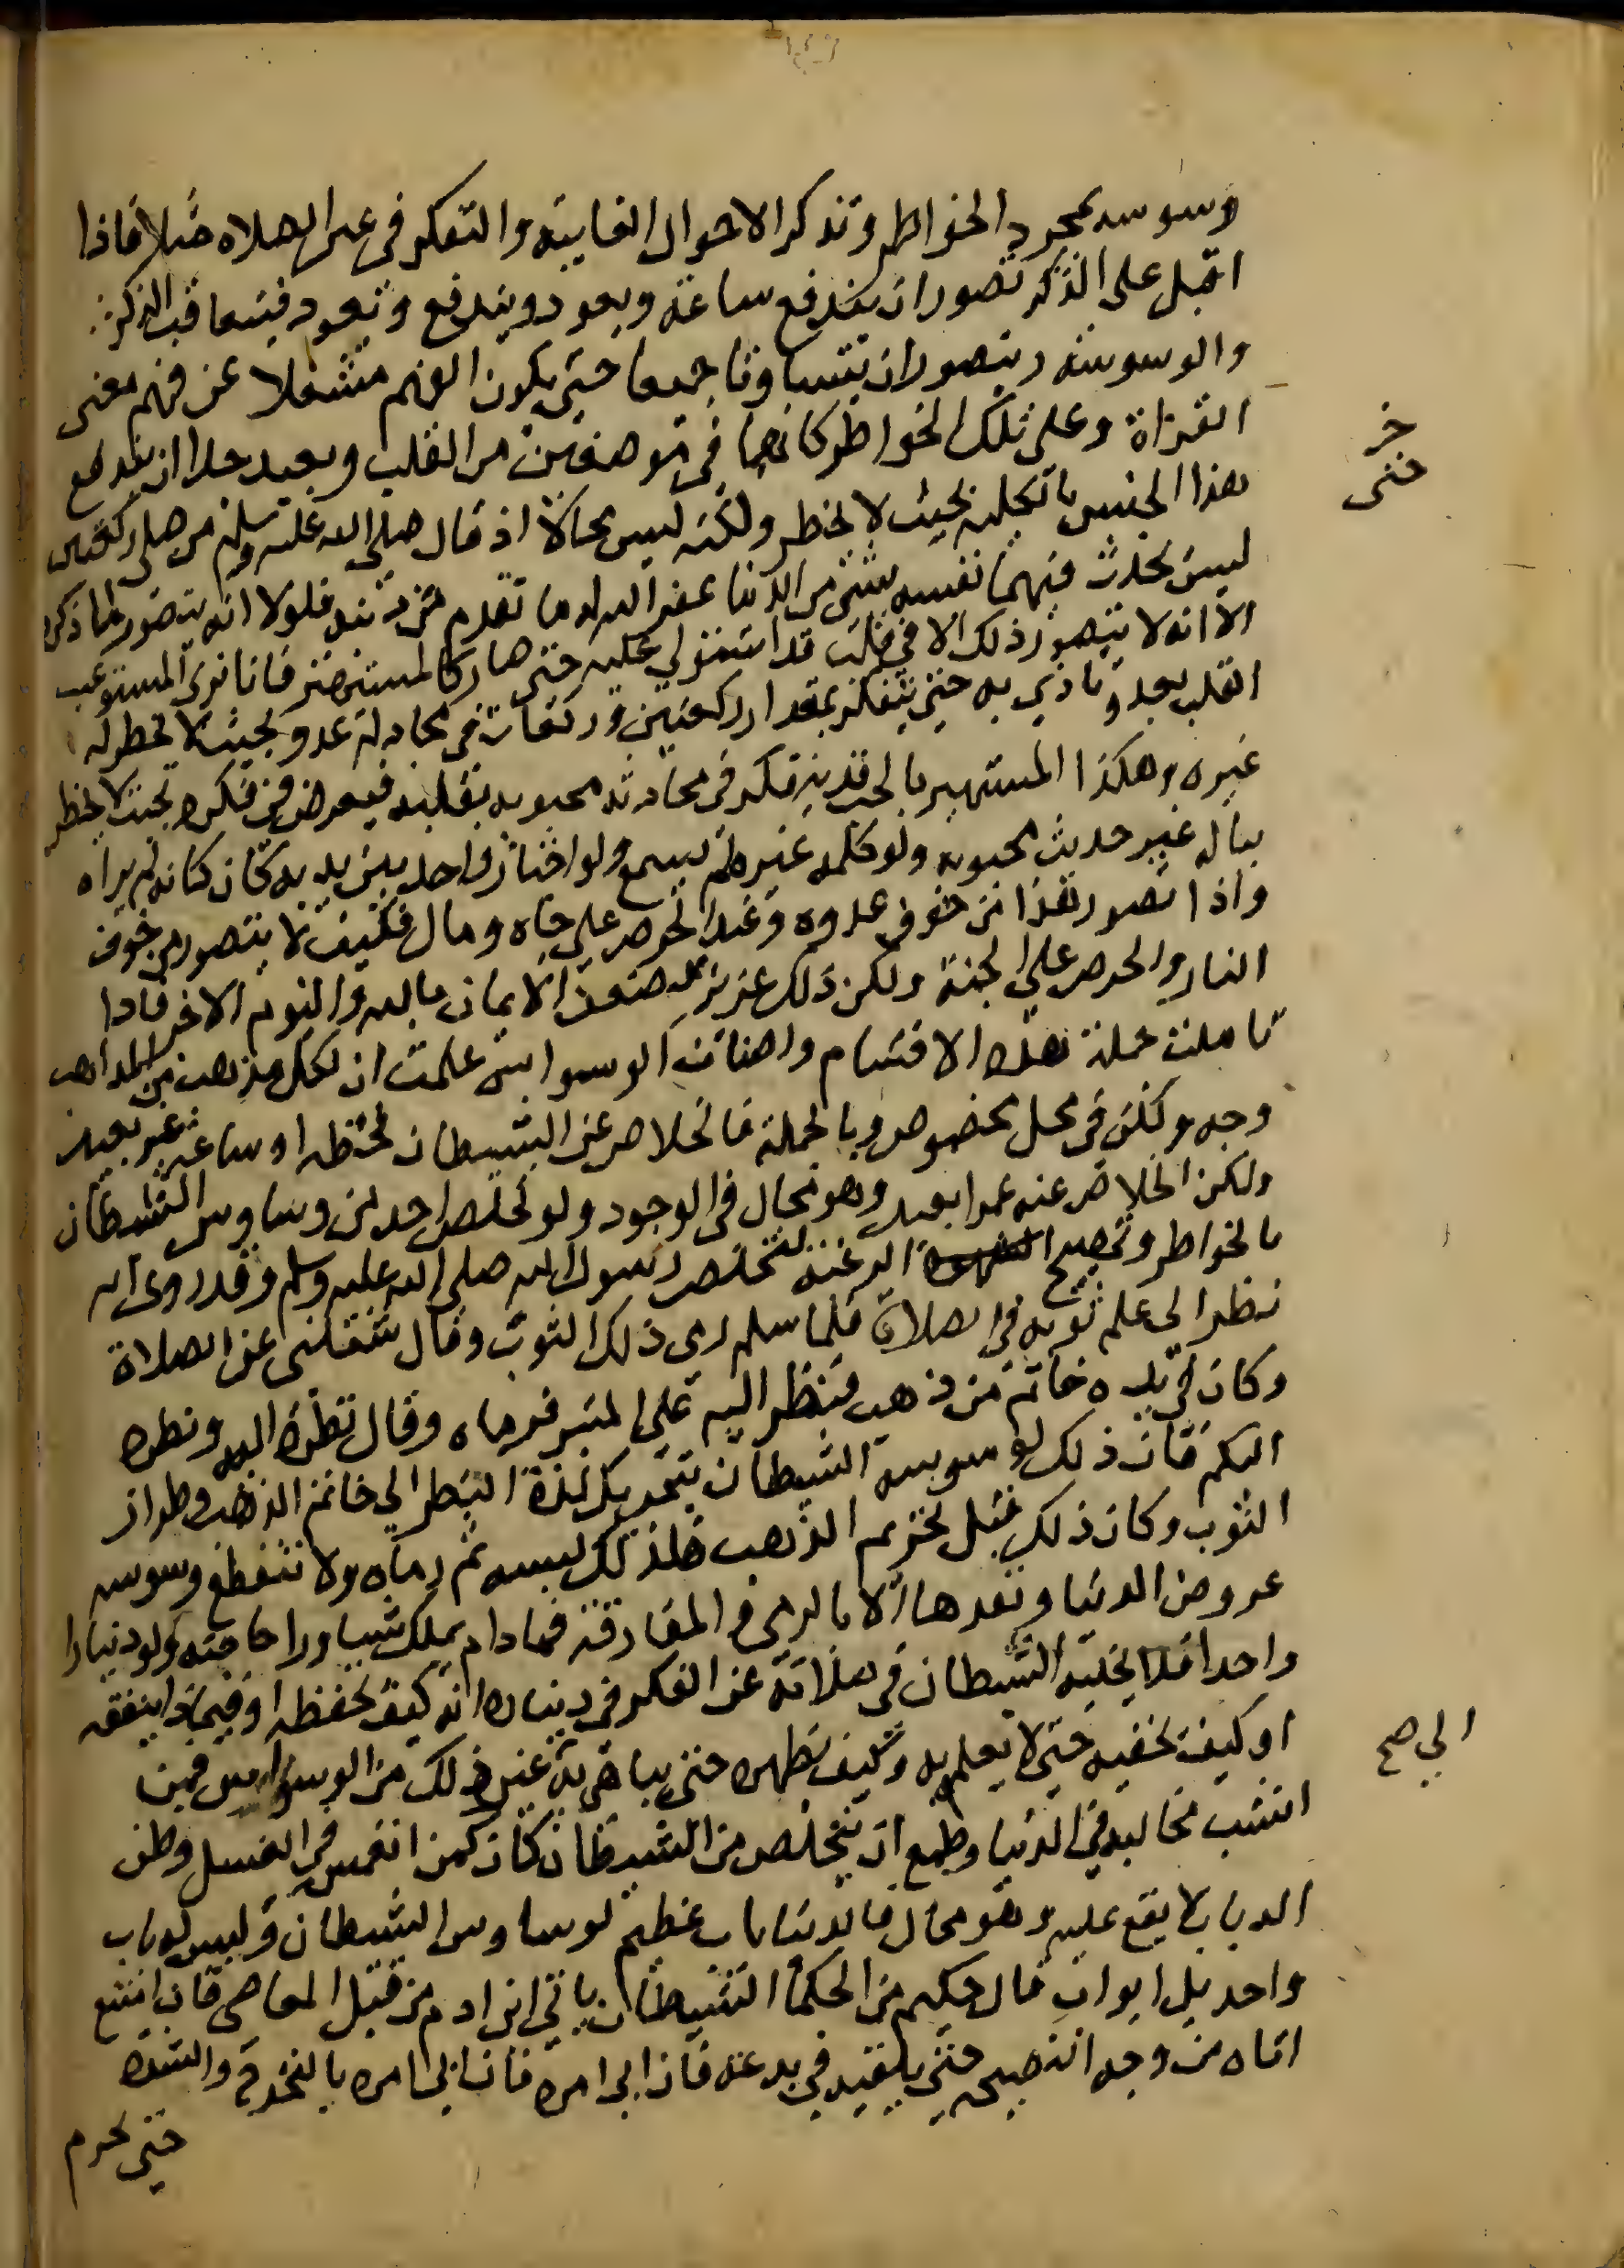 وسوسه بمجرد الخواطر وتذكر الاحوال الغايبه والتفكر في غير الصلاه مثلا فاذا
اقبل على الذكر تصور ان يندفع ساعة ويعود ويندفع وتعود فيتعاقب الذكر
والوسوسه ويتصور ان يتساوقا جميعا حتى يكون الفهم مشتملا عن فهم معنى
القراة وعلى تلك الخواطر كانهما في موضعين من القلب وبعيد جدا ان يندفع
هذا الجنس بالكليه بحيث لا يخطر ولكنه ليس محالا اذ قال صلى الله عليه وسلم من صلى ركعتين
ليس يحدث فيهما نفسه بشئ من الدنيا غفر الله له ما تقدم من ذنبه فلولا انه يتصور لما ذكره
الا انه لا يتصور ذلك الا في قلب قد استولي عليه حتى صار كالمستهتر فانا نرى المستوعب
القلب بعدو تاذي به حتى يتفكر بمقدار ركعتين وركعات في مجادلة عدوه بحيث لا يخطر له
غيره وهكذا المستهتر بالحب قد يتفكر في محادثه محبوبه بقلبه فيعرض في فكره بحيث لا يخطر
بباله غير حديث محبوبه ولو كلمه غيره لم يسمع ولو اجتاز واحد بين يديه كان كانه لم يراه
واذا تصور هذا من خوف عدوه وعند الحرص على جاه ومال فكيف لا يتصور من خوف
النار والحرص على الجنة ولكن ذلك عزيز لضعف الايمان بالله واليوم الاخر فاذا
تاملت جملة هذه الاقسام واصناف الوسواس علمت ان لكل مذهب من المذاهب
وجه ولكن في محل مخصوص وبالجملة فالخلاص عن الشيطان لحظه او ساعة غير بعيد
ولكن الخلاص عنه عمرا بعيد وهو محال في الوجود ولو تخلص احد من وساوس الشيطان
بالخواطر وتهييج الرغبة لتخلص رسول الله صلى الله عليه وسلم وقد روى انه
نظر الى علم ثوبه في الصلاة فلما سلم رمى ذلك الثوب وقال شغلني عن الصلاة
وكان في يده خاتم من ذهب فنظر اليه على المنبر فرماه وقال نظره اليه ونظره
اليكم فان ذلك لوسوسه الشيطان بتحريك لذة النظر الى خاتم الذهب وطراز
الثوب وكان ذلك قبل تحريم الذهب فلذلك لبسه ثم رماه ولا تنقطع وسوسه
عروض الدنيا ونقدها الا بالرمي والمفارقة فما دام يملك شيا ورا حاجته ولو دينارا
واحدا فلا يخليه الشيطان في صلاته عن الفكر في ديناره انه كيف يحفظه او فيماذا ينفقه
او كيف يخفيه حتى لا يعلم به وكيف يظهره حتى يباهي به غير ذلك من الوسواس فمن
انتشب مخاليبه في الدنيا وطمع ان يتخلص من الشيطان كان كمن انغمس في العسل وظن
الدباب لا يقع عليه وهو محال فالدنيا باب عظيم لوساوس الشيطان وليس له باب
واحد بل ابواب قال حكيم من الحكما الشيطان ياتي ابن ادم من قبل المعاصي فان امتنع
اتاه من وجه النصيحه حتى يلقيه في بدعه فان ابى امره فان ابى امره بالتحرج والشده
حتى يحرم
خر
حتى
الي صح